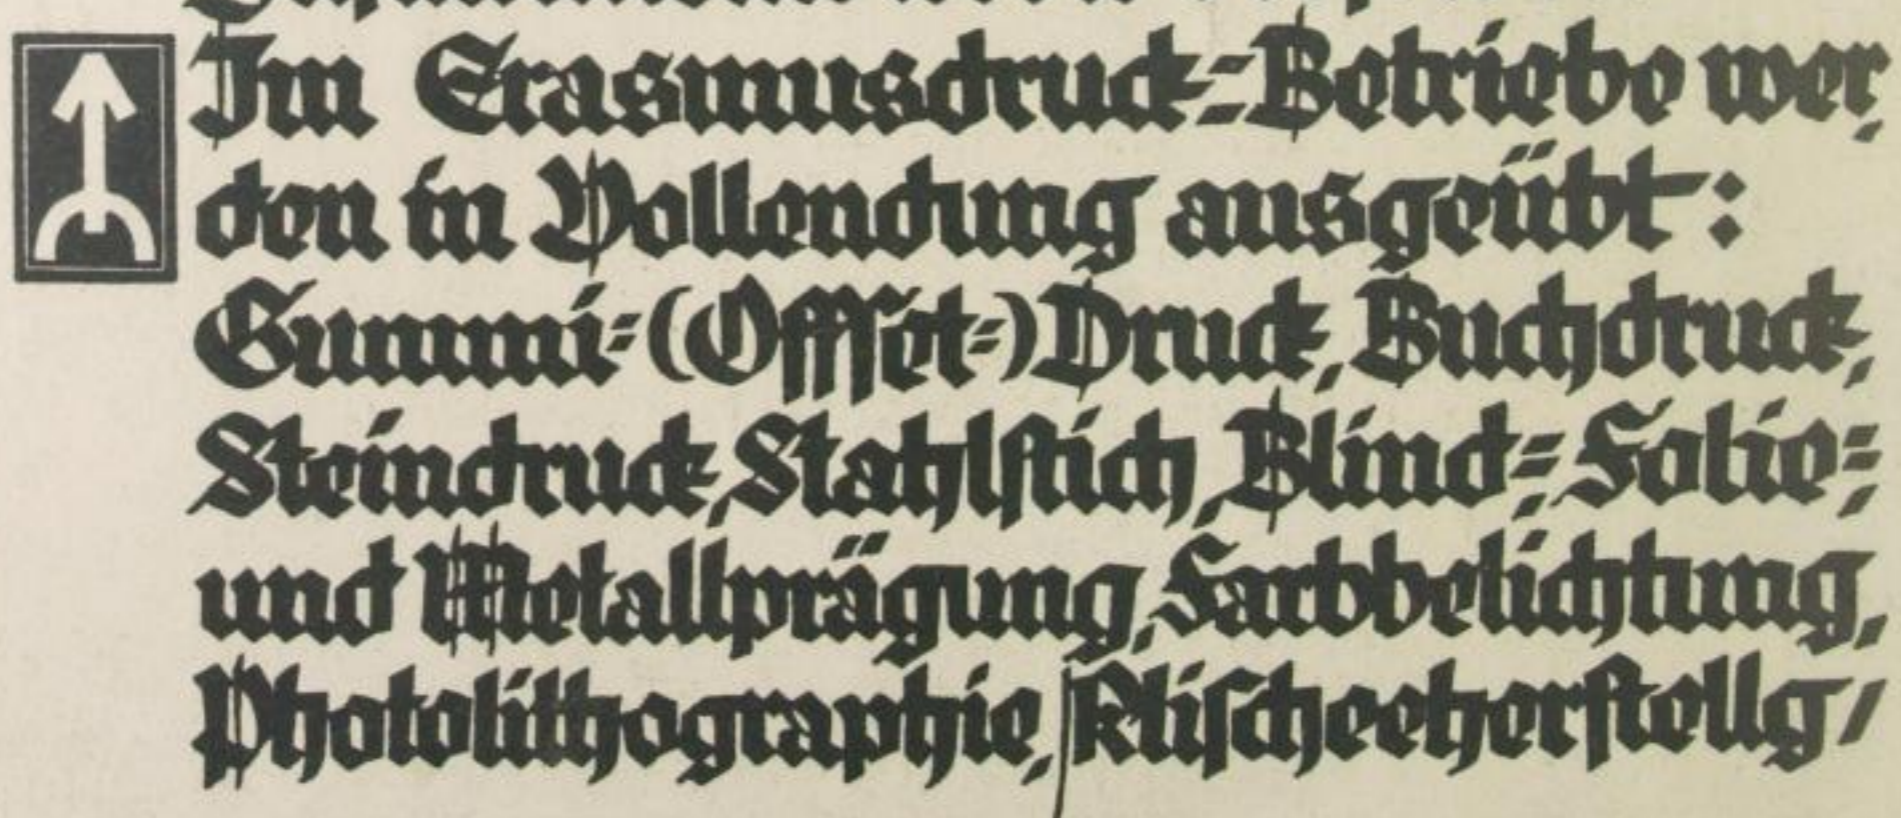 Im Erasmusdruck=Betriebe wer,
den in Vollendung ausgeübt:
Gummi=(Offſet=)Druck, Buchdruck,
Steindruck, Stahlſtich, Blind=, Folie=,
und Metallprägung, Farbbelichtung,
Photolithographie, Kliſcheeherſtellg/